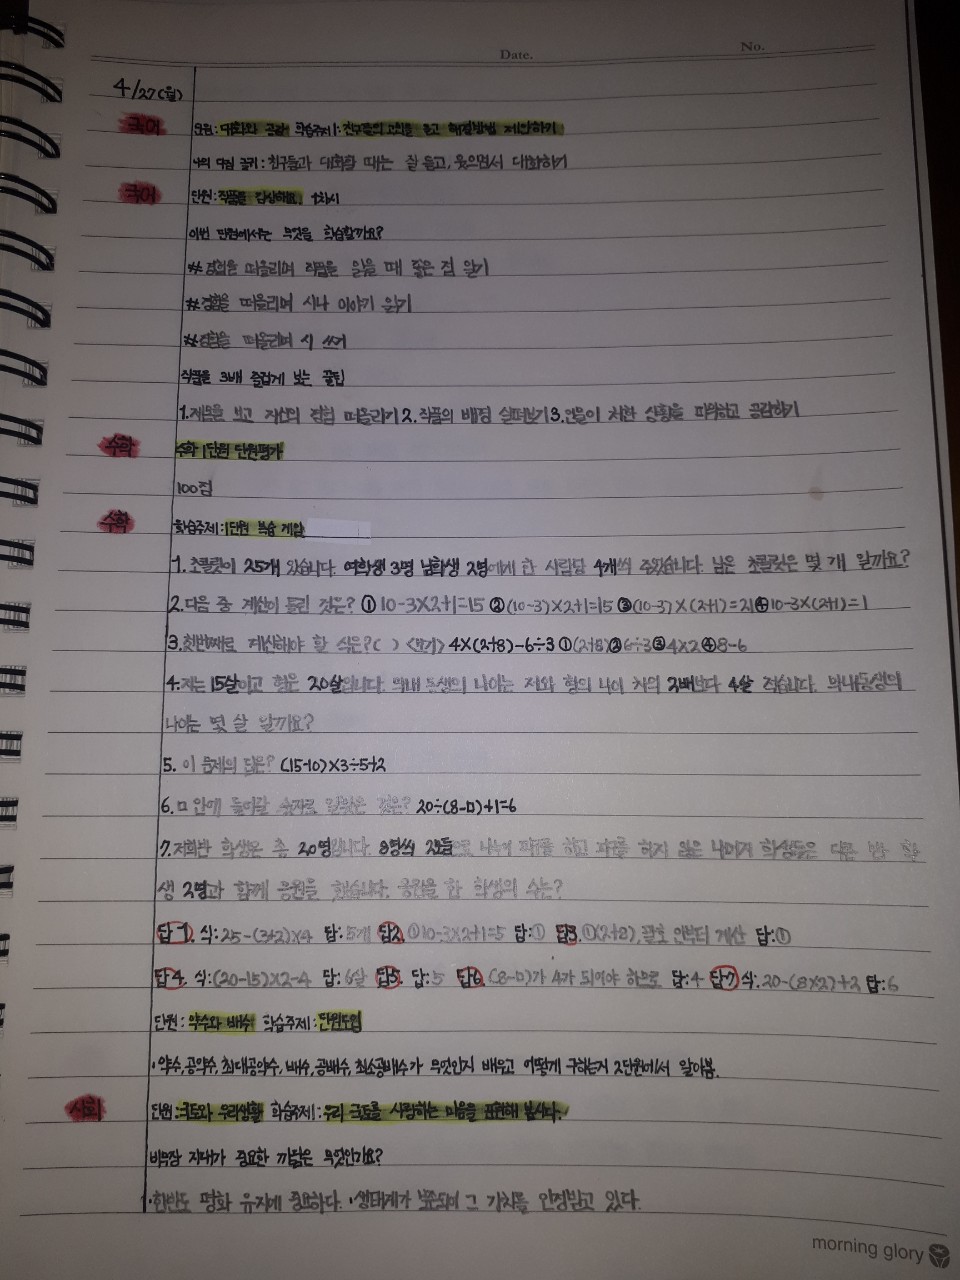 Date.
No.
4/27(월)
국어 단원: 대화와 공감 학습주제: 친구들의 고민을 듣고 해결방법 제안하기
나의 다짐 꼴키: 친구들과 대화할 때는 잘 듣고, 웃으면서 대화하기
국어 단원: 작품을 감상해요. 1차시
이번 단원에서는 무엇을 학습할까요?
#경험을 떠올리며 작품을 읽을 때 좋은 점 알기
#경험을 떠올리며 시나 이야기 읽기
#경험을 떠올리며 시 쓰기
작품을 3배 즐겁게 보는 꿀팁
1.제목을 보고 자신의 경험 떠올리기 2. 작품의 배경 살펴보기 3.인물이 처한 상황을 파악하고 공감하기
수학 수학 1단원 단원평가
100점
수학 학습주제: 1단원 복습 게임
1. 초콜릿이 25개 있습니다. 여학생 3명 남학생 2명에게 한 사람당 4개씩 주었습니다. 남은 초콜릿은 몇 개 일까요?
2.다음 중 계산이 틀린 것은? ① 10-3×2+1=15 ②(10-3)×2+1=15 ③(10-3)×(2+1)=21 ④10-3×(2+1)=1
3.첫번째로 계산해야 할 식은?( ) <보기> 4×(2+8)-6÷3 ①(2+8)②6÷3③4×2④8-6
4.저는 15살이고 형은 20살입니다. 막내 동생의 나이는 저와 형의 나이 차의 2배보다 4살 적습니다. 막내동생의
나이는 몇 살 일까요?
5. 이 문제의 답은? (15-10)×3÷5+2
6.ㅁ안에 들어갈 숫자로 알맞은 것은? 20÷(8-ㅁ)+1=6
7.저희반 학생은 총 20명입니다. 8명씩 2모둠으로 나누어 피구를 하고 피구를 하지 않은 나머지 학생들은 다른 반 학
생 2명과 함께 응원을 했습니다. 응원을 한 학생의 수는?
답1. 식: 25-(3+2)×4 답: 5개 답2. ①10-3×2+1=5 답:① 답3. ①(2+8), 괄호 안부터 계산 답:①
답4. 식:(20-15)×2-4 답: 6살 답5. 답: 5 답6. (8-ㅁ)가 4가 되어야 하므로 답:4 답7 식: 20-(8×2)+2 답: 6
단원: 약수와 배수 학습주제: 단원도입
·약수,공약수,최대공약수,배수,공배수,최소공배수가 무엇인지 배우고 어떻게 구하는지 2단원에서 알아봄.
사회 단원: 국토와 우리생활 학습주제: 우리 국토를 사랑하는 마음을 표현해 봅시다.
비무장 지대가 중요한 까닭은 무엇인가요?
·한반도 평화 유지에 중요하다. ·생태계가 보존되어 그 가치를 인정받고 있다.
morning glory